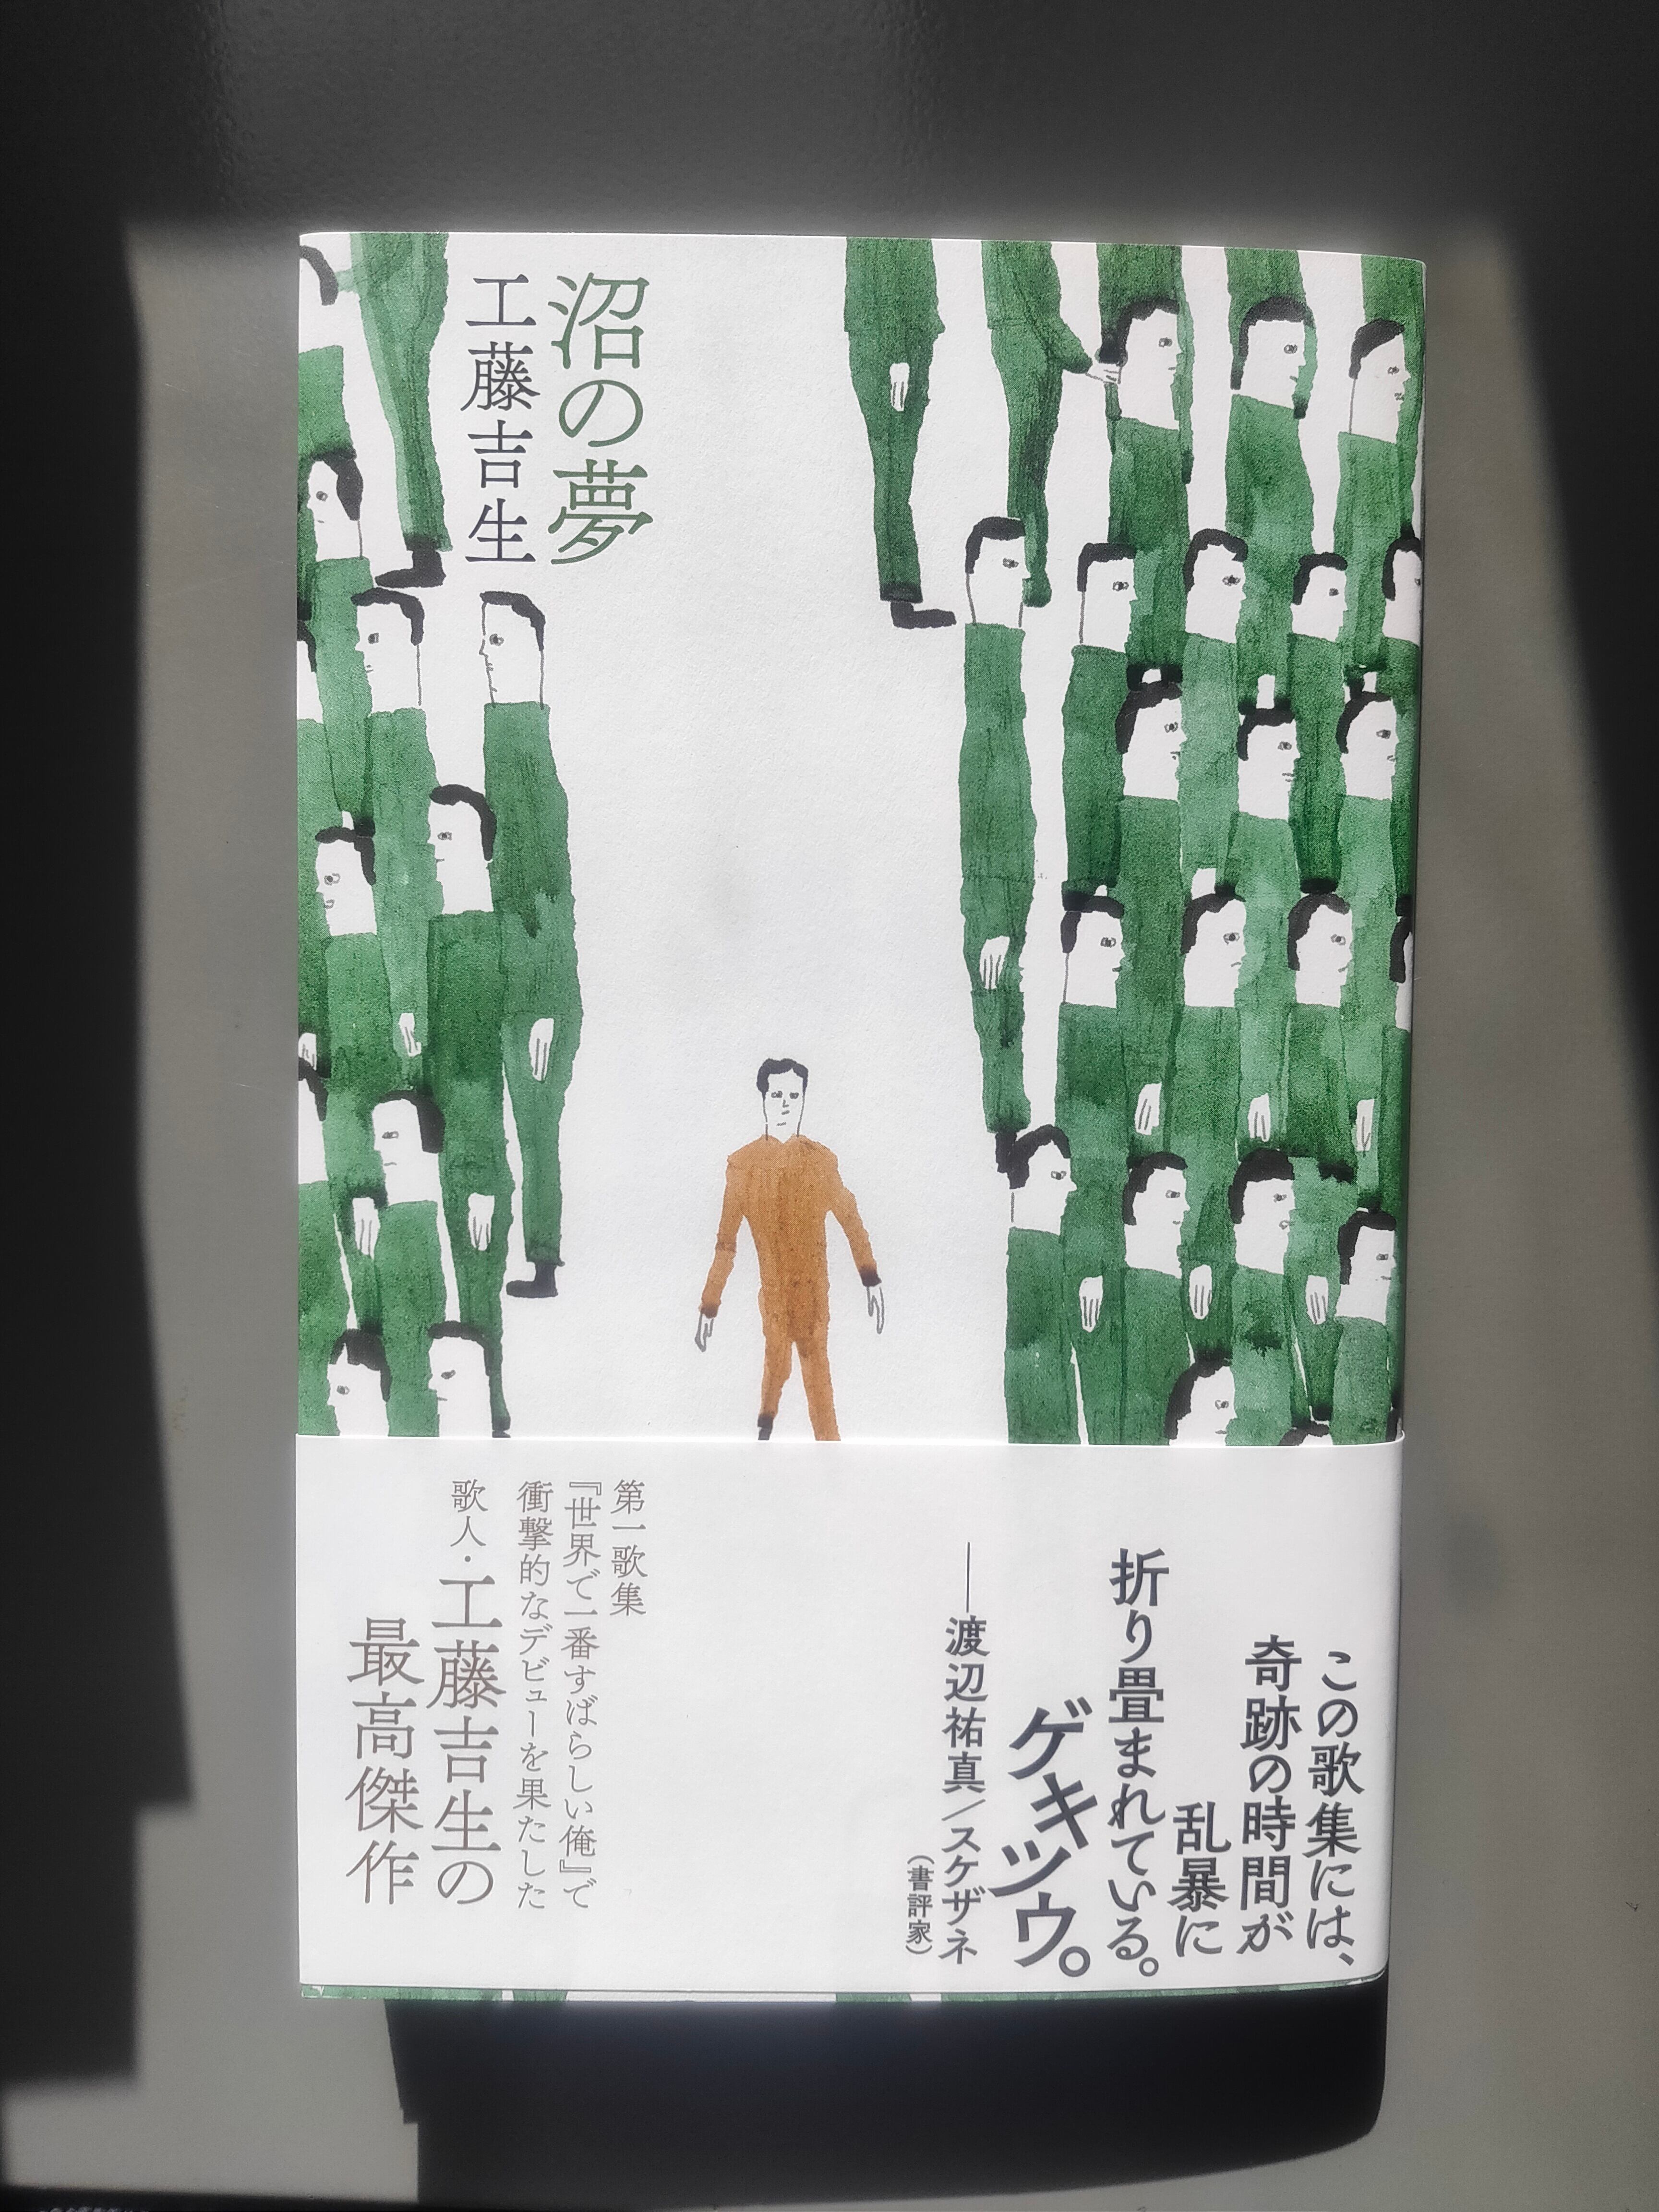 沼の夢
工藤吉生
この歌集には、
奇跡の時間が
乱暴に
折り畳まれている。
ゲキツウ。
――渡辺祐真／スケザネ
（書評家）
第一歌集
『世界で一番すばらしい俺』で
衝撃的なデビューを果たした
歌人・工藤吉生の
最高傑作